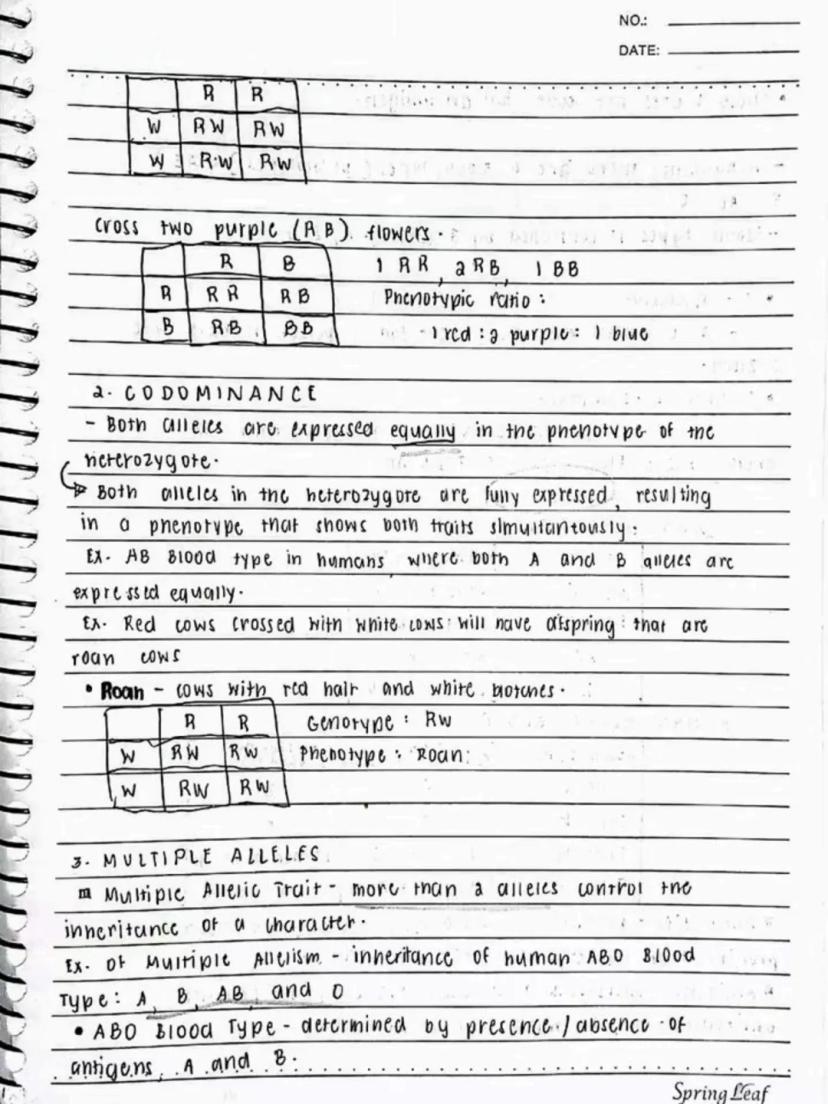 NO.:
DATE:
R R
W RW RW
W RW RW
Cross two purple (R,B) flowers.
R B 1 RR, 2 RB, 1 BB
R RR RB Phenotypic ratio:
B RB BB 1 red : 2 purple : 1 blue
2. CODOMINANCE
- Both alleles are expressed equally in the phenotype of the
heterozygote.
Both alleles in the heterozygote are fully expressed, resulting
in a phenotype that shows both traits simultantously.
Ex. AB Blood type in humans, where both A and B alleles are
expressed equally.
Ex. Red cows crossed with white cows will have ofspring that are
roan cows
• Roan - cows with red hair and white blotches.
R R Genotype : RW
W RW RW Phenotype : Roan
W RW RW
3. MULTIPLE ALLELES
Multiple Allelic Trait - more than 2 alleles control the
inheritance of a character.
Ex. of Multiple Allelism - inheritance of human ABO Blood
Type: A, B, AB, and O
• ABO Blood Type - determined by presence/absence of
antigens, A and B.
Spring Leaf